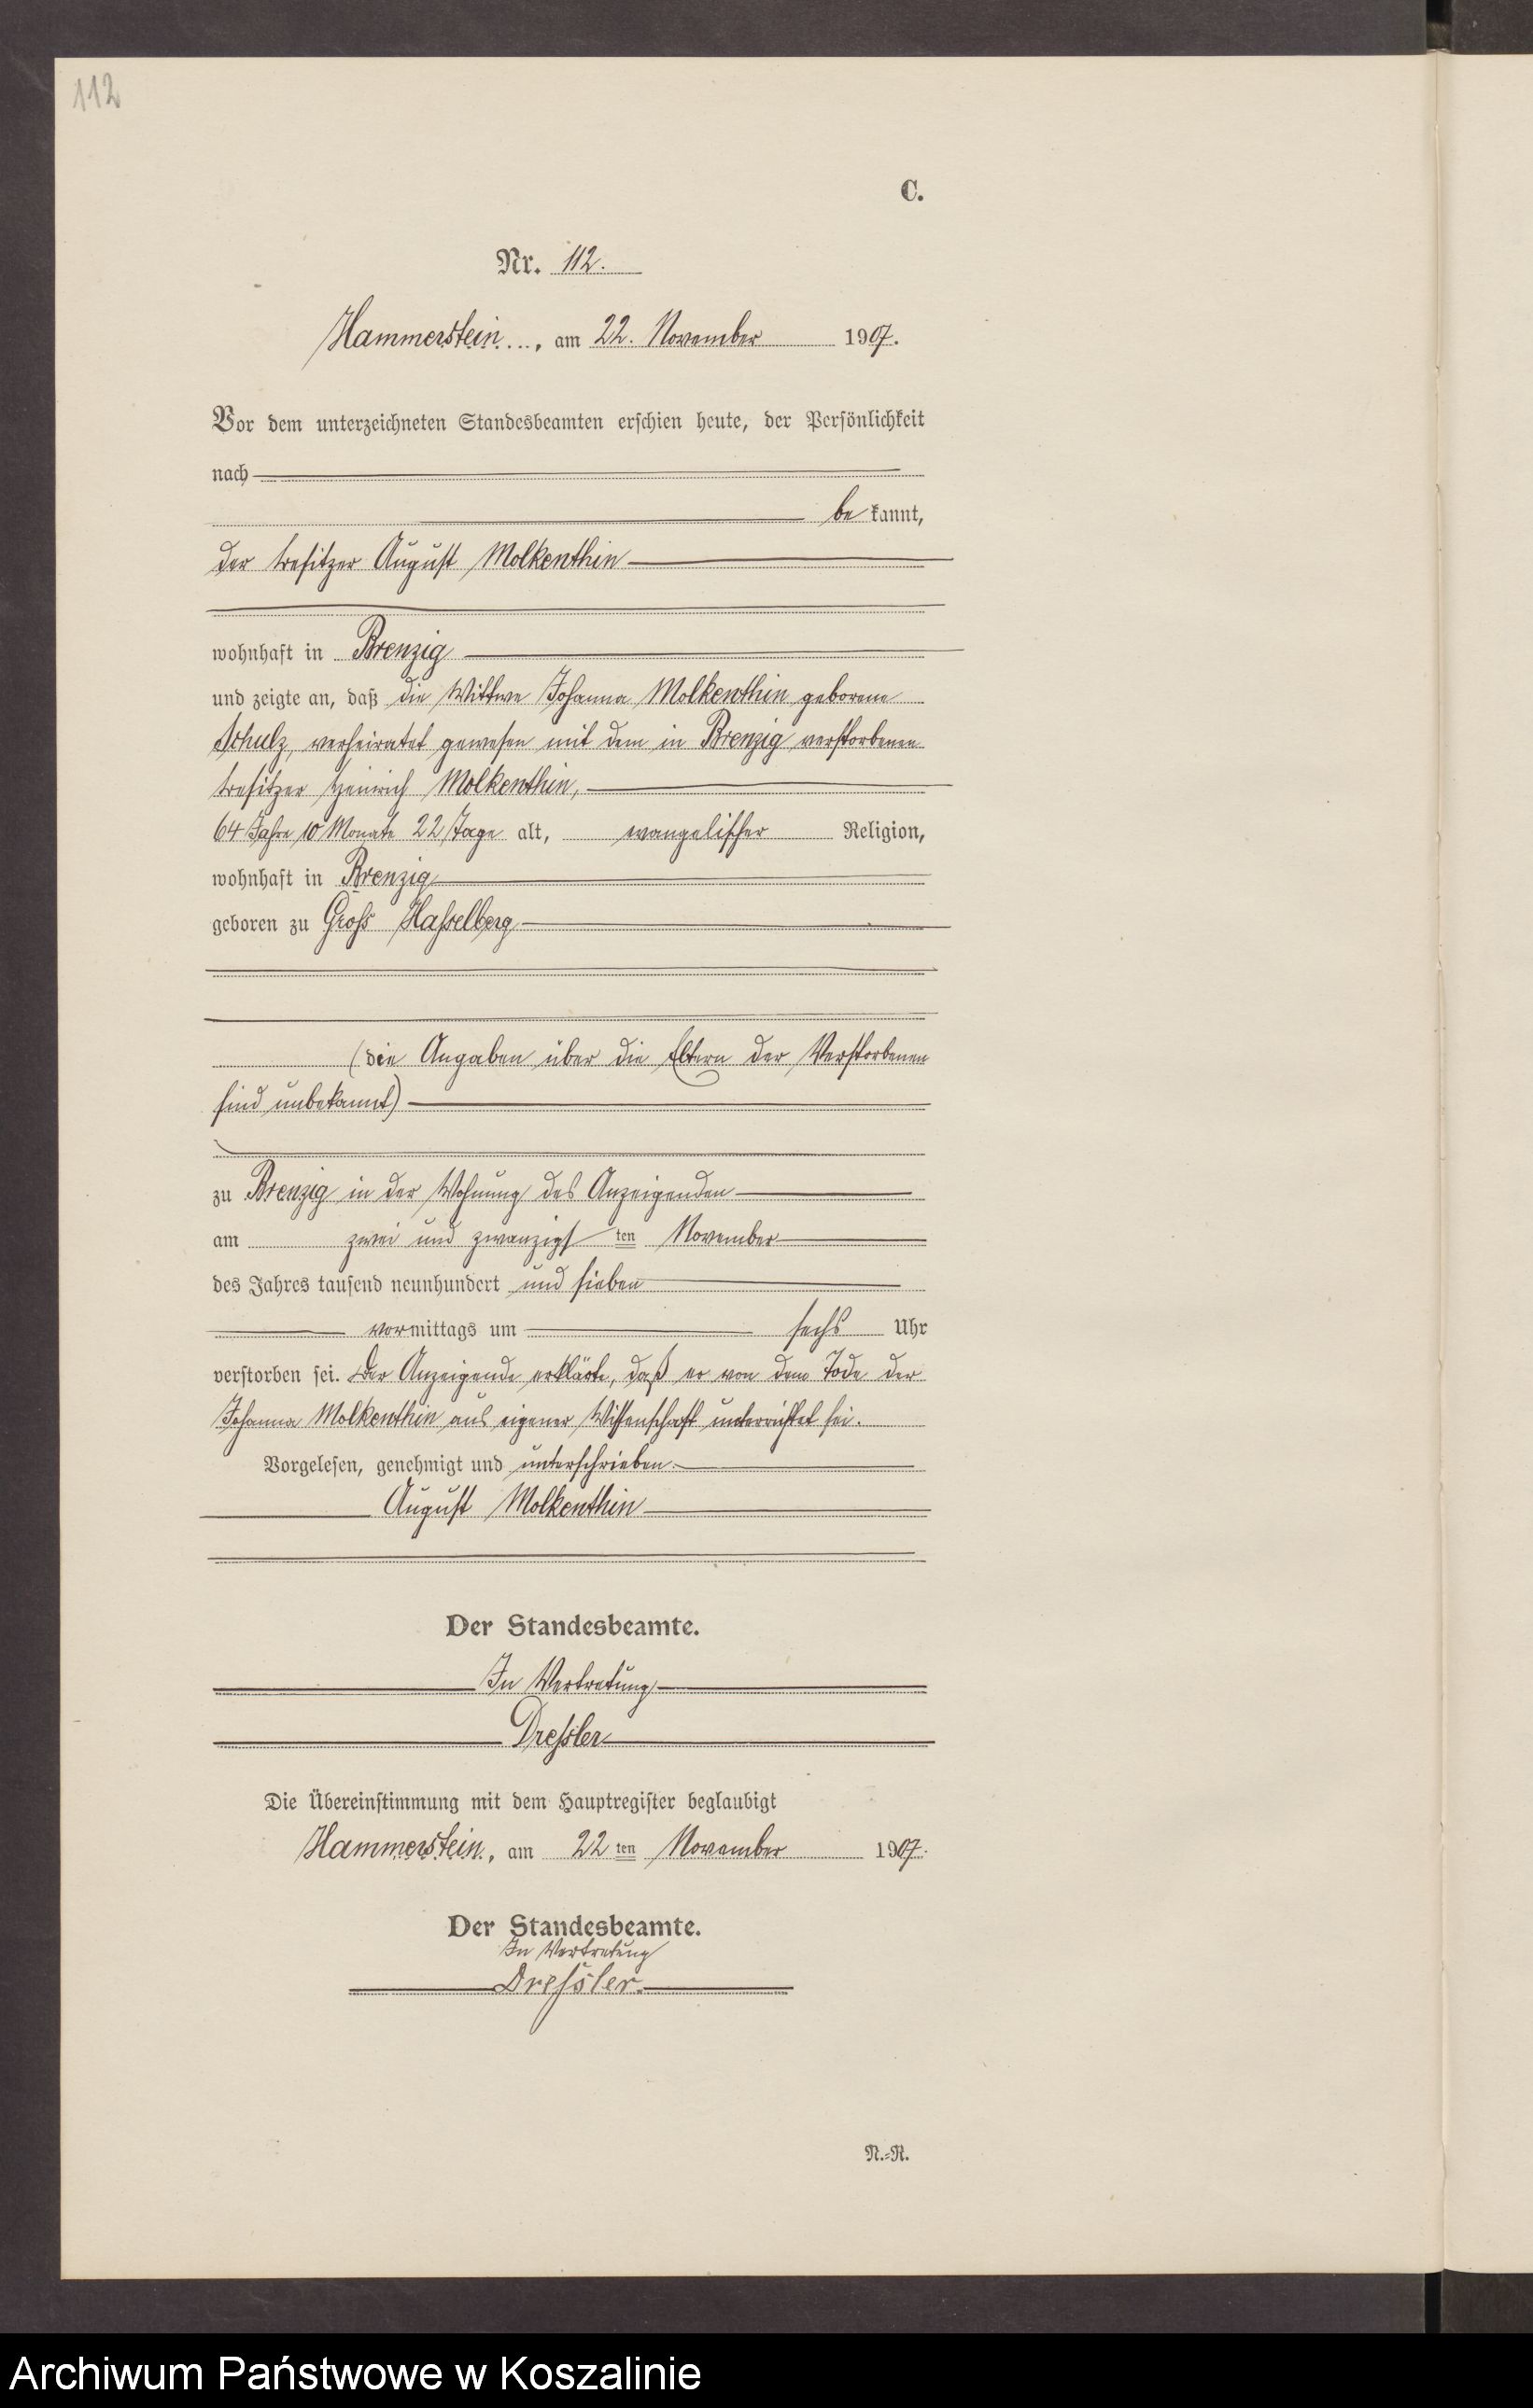 112
C.
Nr. 112.
Hammerstein..., am 22. November 1907.
Vor dem unterzeichneten Standesbeamten erschien heute, der Persönlichkeit
nach
be kannt,
der Besitzer August Molkenthin
wohnhaft in Brenzig
und zeigte an, daß die Wittwe Johanna Molkenthin geborene
Schulz, verheiratet gewesen mit dem in Brenzig verstorbenen
Besitzer Heinrich Molkenthin,
64 Jahre 10 Monate 22 Tage alt, evangelischer Religion,
wohnhaft in Brenzig
geboren zu Gross Hasselberg
(die Angaben über die Eltern der Verstorbenen
sind unbekannt)
zu Brenzig in der Wohnung des Anzeigenden
am zwei und zwanzigsten November
des Jahres tausend neunhundert und sieben
vormittags um sechs Uhr
verstorben sei. Der Anzeigende erklärte, daß er von dem Tode der
Johanna Molkenthin aus eigener Wissenschaft unterrichtet sei.
Vorgelesen, genehmigt und unterschrieben.
August Molkenthin
Der Standesbeamte.
In Vertretung
Dressler
Die Übereinstimmung mit dem Hauptregister beglaubigt
Hammerstein., am 22 ten November 1907.
Der Standesbeamte.
In Vertretung
Dressler.
N.=R.
Archiwum Państwowe w Koszalinie